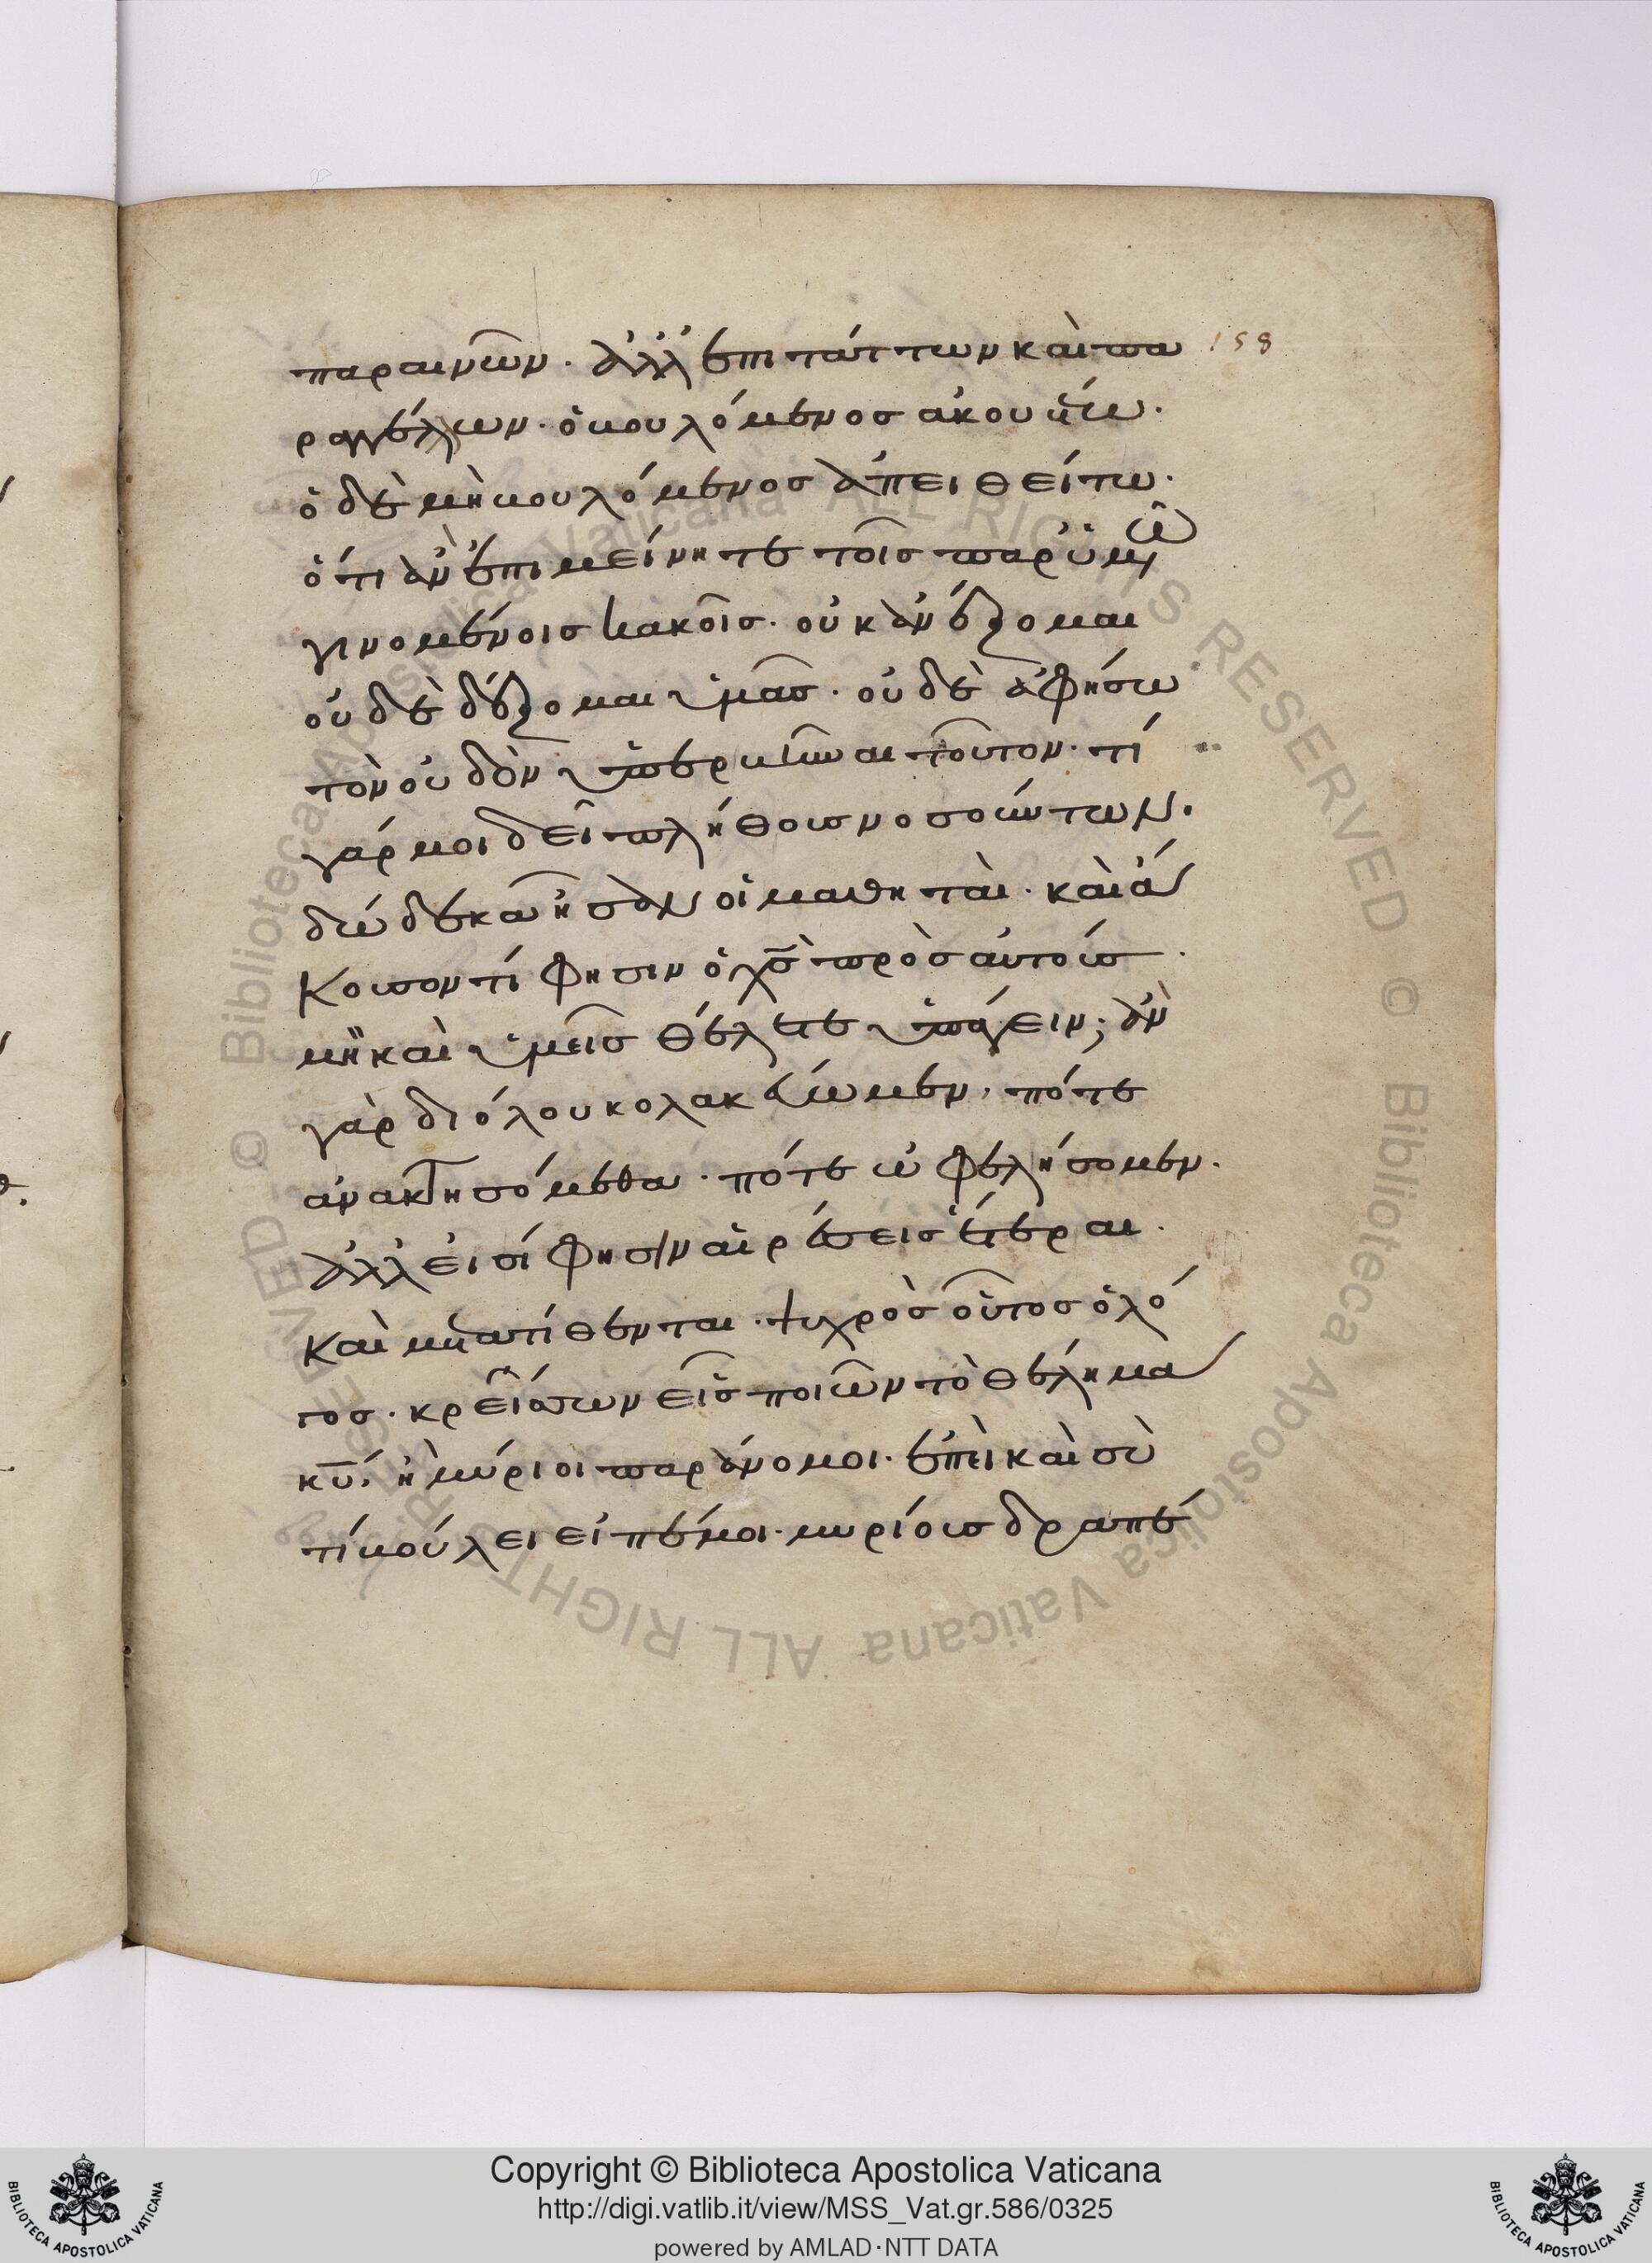 παραινῶν. ἀλλ' ἐπιτάττων καὶ πα
ραγγέλλων. ὁ βουλόμενος ἀκουέτω.
ὁ δὲ μὴ βουλόμενος ἀπειθείτω.
ὅτι ἂν ἐπιμείνητε τοῖς παρ' ὑμῶ
γινομένοις κακοῖς. οὐκ ἀνέξομαι
οὐδὲ δέξομαι ὑμᾶς. οὐδὲ ἀφήσω
τὸν οὐδὸν ὑπερβῆναι τοῦτον. τί
γάρ μοι δεῖ πλήθους νοσούντων.
δώδεκα ἦσαν οἱ μαθηταὶ. καὶ ἄ
κουσον τί φησιν ὁ χ̅ς̅ πρὸς αὐτούς.
μὴ καὶ ὑμεῖς θέλετε ὑπάγειν; ἂν
γὰρ διόλου κολακεύωμεν, πότε
ἀνακτησόμεθα. πότε ὠφελήσομεν.
ἀλλ' εἰσί φησιν αἱρέσεις ἕτεραι.
καὶ μετατίθενται. ψυχρὸς οὗτος ὁ λό
γος. κρείσσων εἷς ποιῶν τὸ θέλημα
κ̅υ̅. ἢ μύριοι παράνομοι. ἐπεὶ καὶ σὺ
τί βούλει εἰπέ μοι. μυρίους δραπέ
158
Copyright © Biblioteca Apostolica Vaticana
http://digi.vatlib.it/view/MSS_Vat.gr.586/0325
powered by AMLAD·NTT DATA
BIBLIOTECA APOSTOLICA VATICANA
BIBLIOTECA APOSTOLICA VATICANA
© Biblioteca Apostolica Vaticana ALL RIGHTS RESERVED © Biblioteca Apostolica Vaticana ALL RIGHTS RESERVED